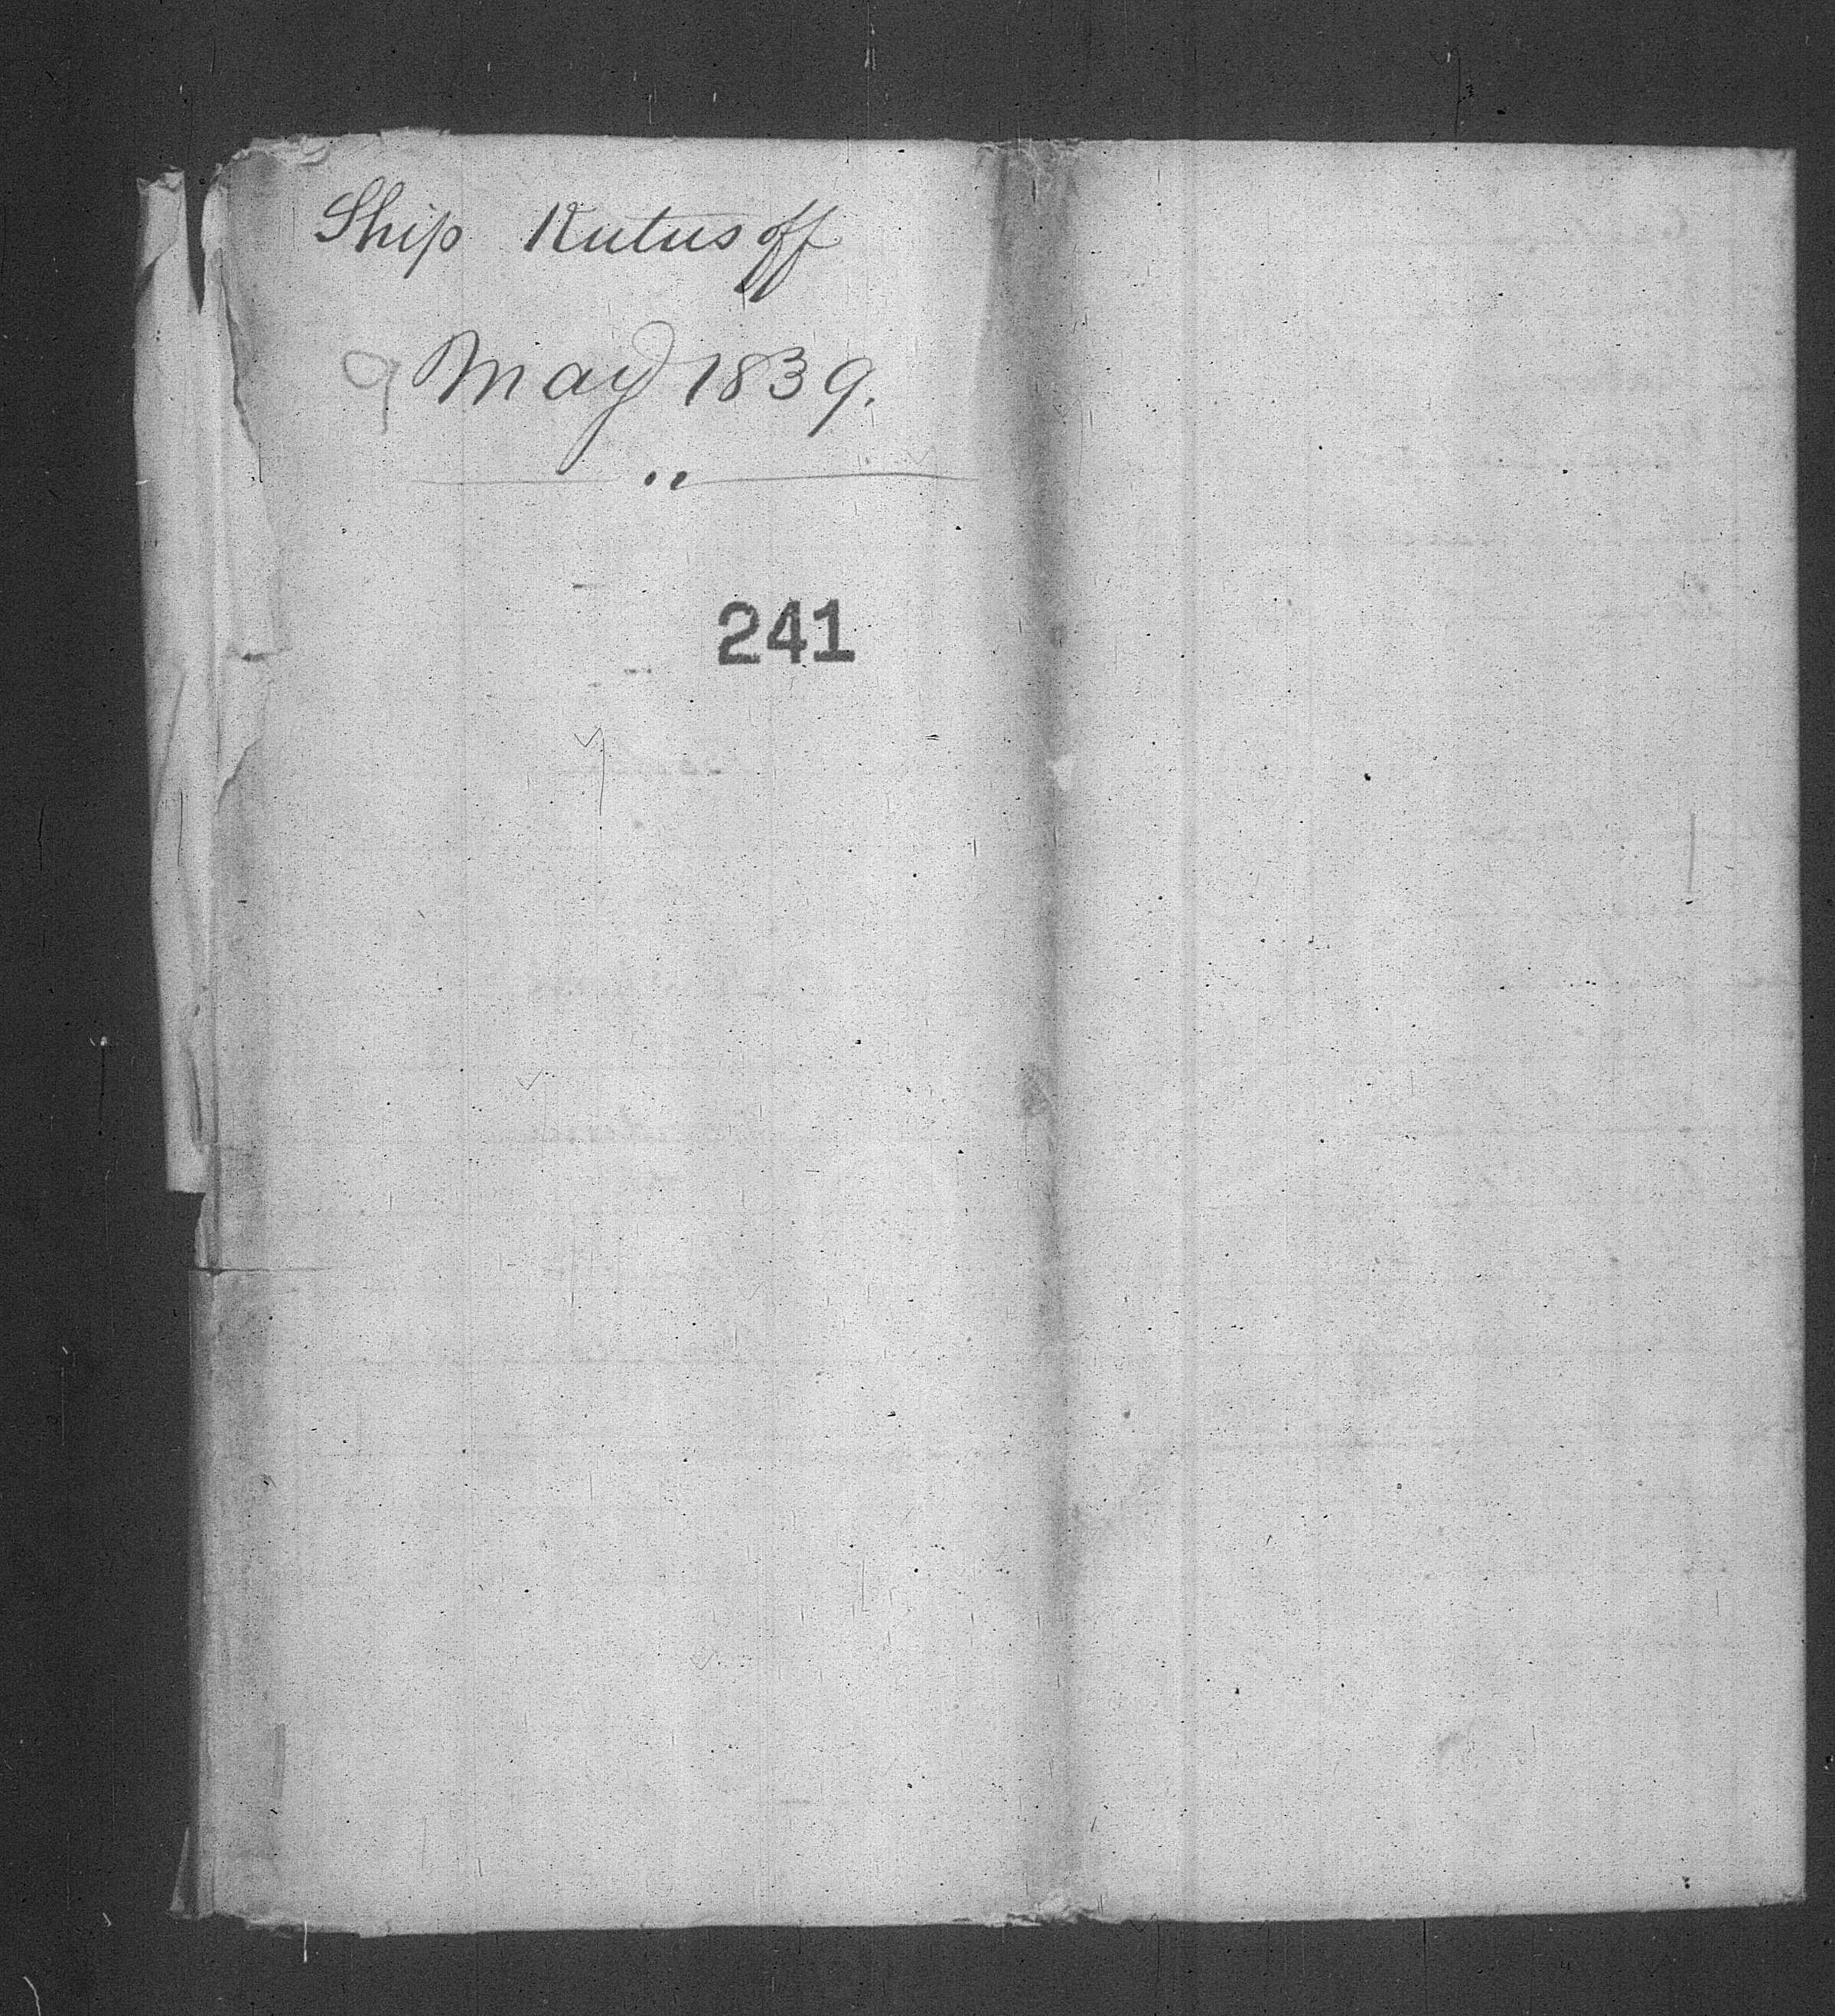 Ship Kutusoff
9 May 1839.
241